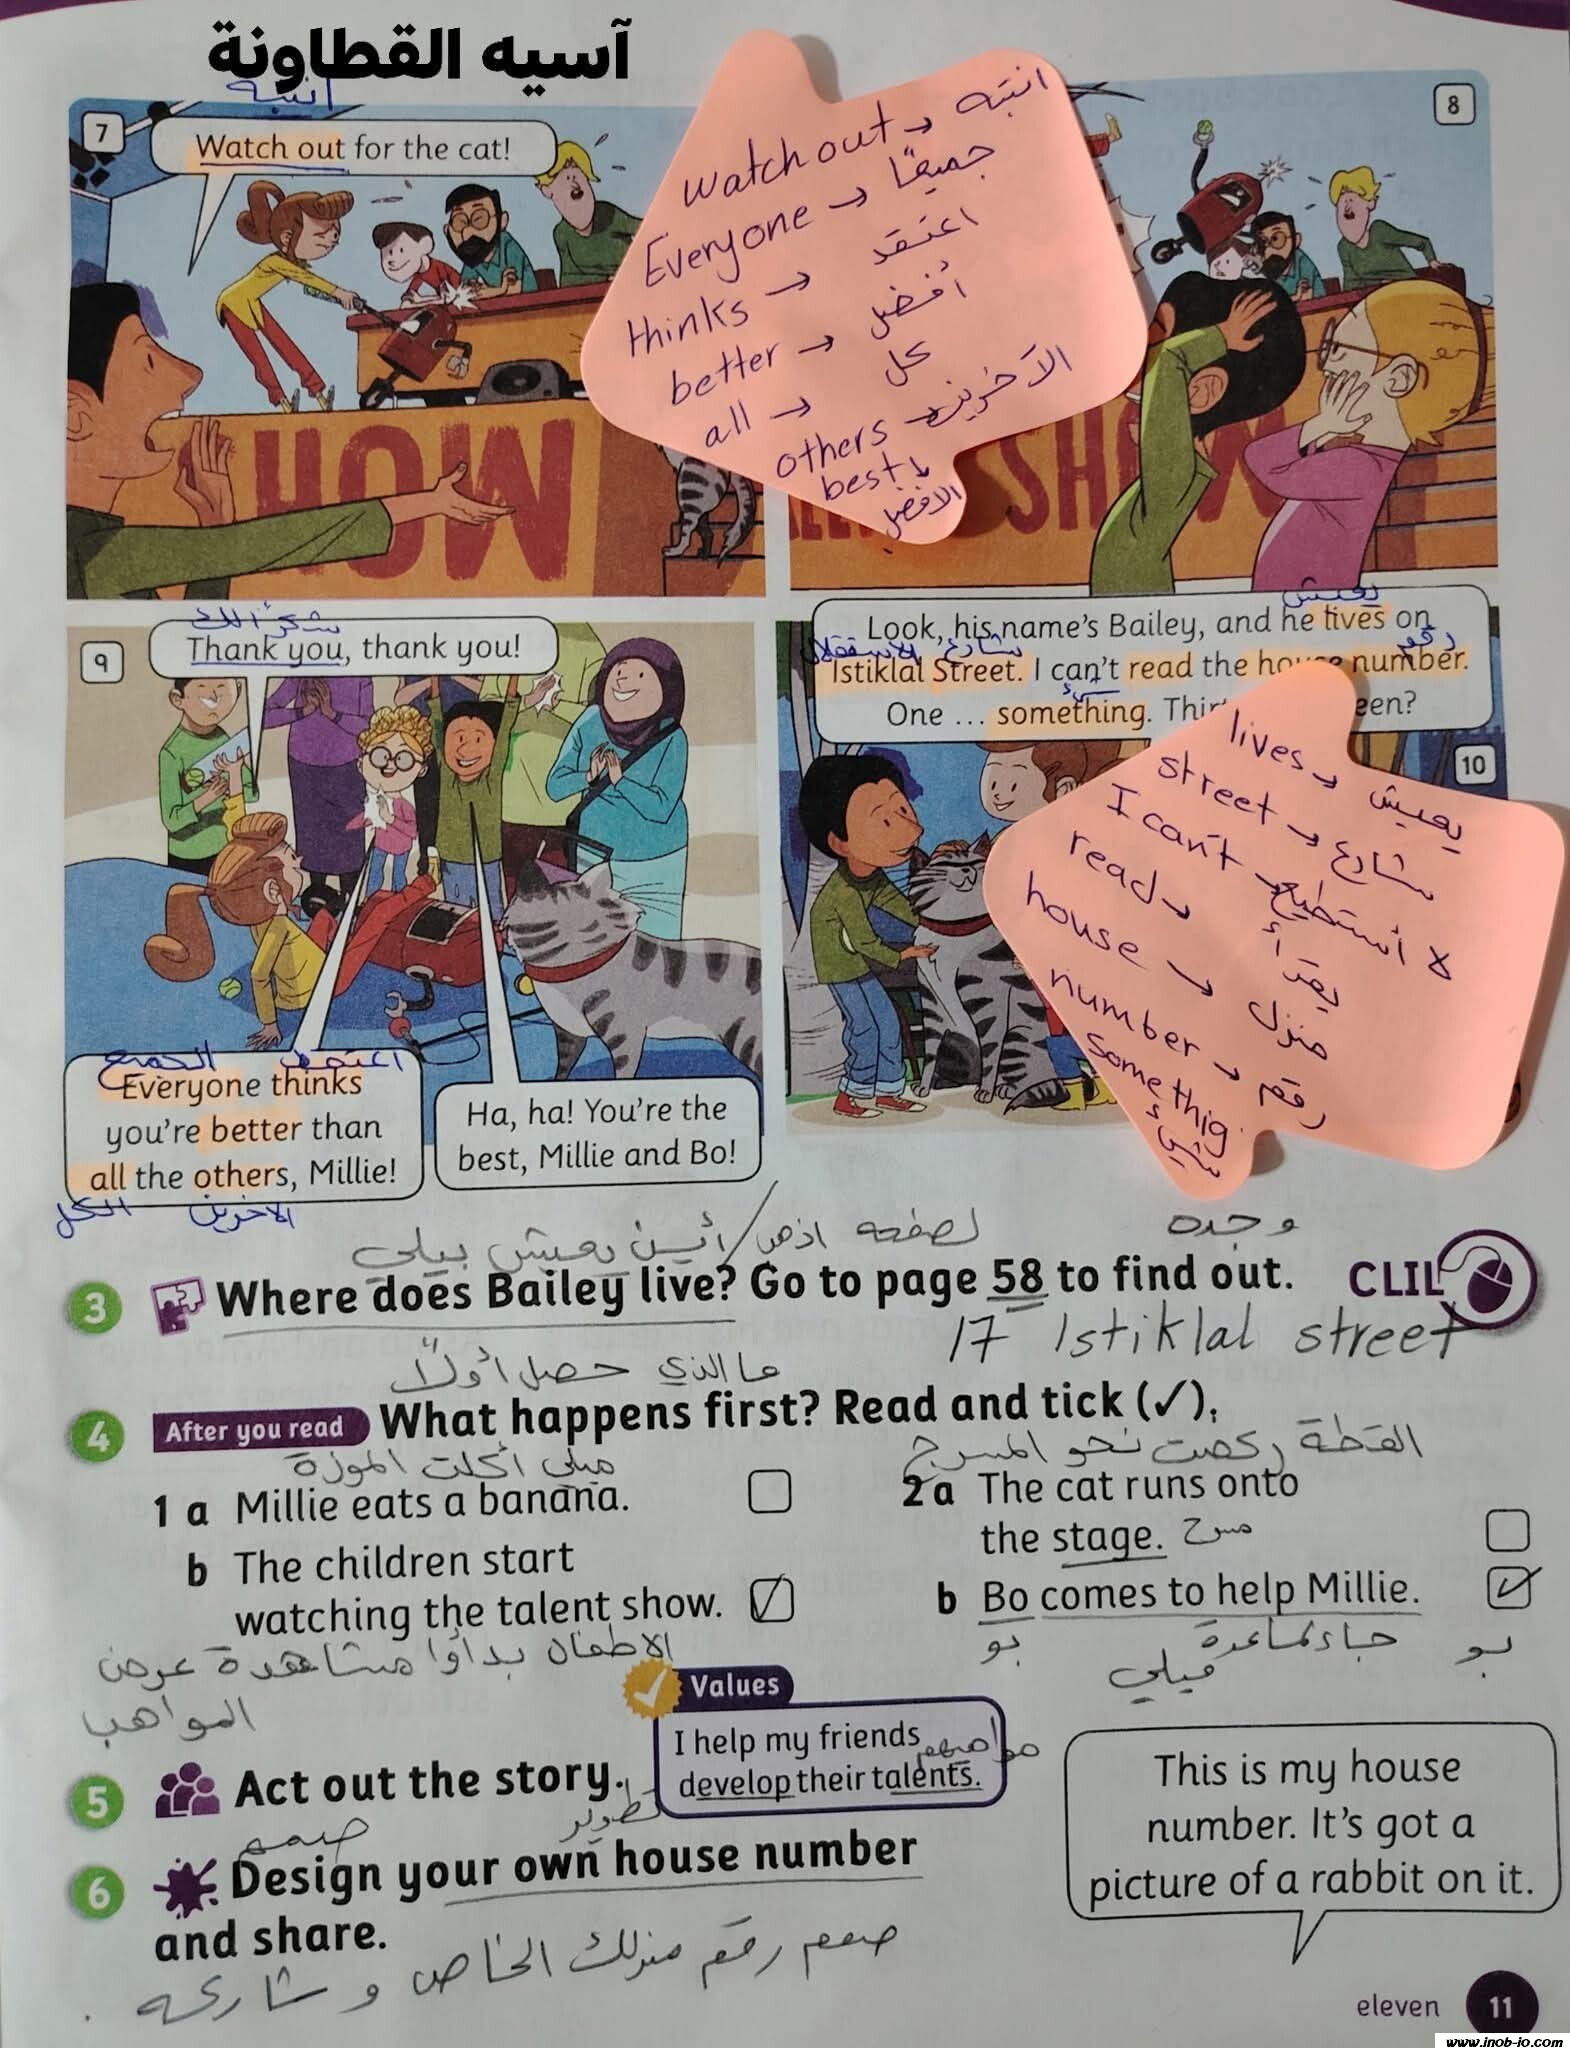 آسيه القطاونة
انتبه
7
Watch out for the cat!
watch out → انتبه
Everyone → جميعًا
thinks → اعتقد
better → أفضل
all → كل
others → الآخرين
best ↓
الافضل
8
HOW
SHOW
9
شكرًا لك
Thank you, thank you!
يعيش
Look, his name's Bailey, and he lives on
شارع الاستقلال رقم
Istiklal Street. I can't read the house number.
شيء
One … something. Thir
een?
10
lives → يعيش
street → شارع
I can't → لا أستطيع
read → يقرأ
house → منزل
number → رقم
somethig
شيء
الجميع اعتقد
Everyone thinks
you're better than
all the others, Millie!
الكل الاخرين
Ha, ha! You're the
best, Millie and Bo!
أين يعيش بيلي / اذهب لصفحه وجده
3 Where does Bailey live? Go to page 58 to find out. CLIL
17 Istiklal street
ما الذي حصل أولًا
4 After you read What happens first? Read and tick (✓).
ميلي أكلت الموزة
1 a Millie eats a banana.
b The children start
watching the talent show.
الاطفال بدأوا مشاهدة عرض
المواهب
القطة ركضت نحو المسرح
2 a The cat runs onto
the stage. مسرح
b Bo comes to help Millie.
بو جاء لمساعدة ميلي بو
Values
I help my friends
مواهبهم
develop their talents.
تطوير
5 Act out the story.
صمم
6 Design your own house number
and share.
صمم رقم منزلك الخاص و شاركه .
This is my house
number. It's got a
picture of a rabbit on it.
eleven 11
www.jnob-jo.com